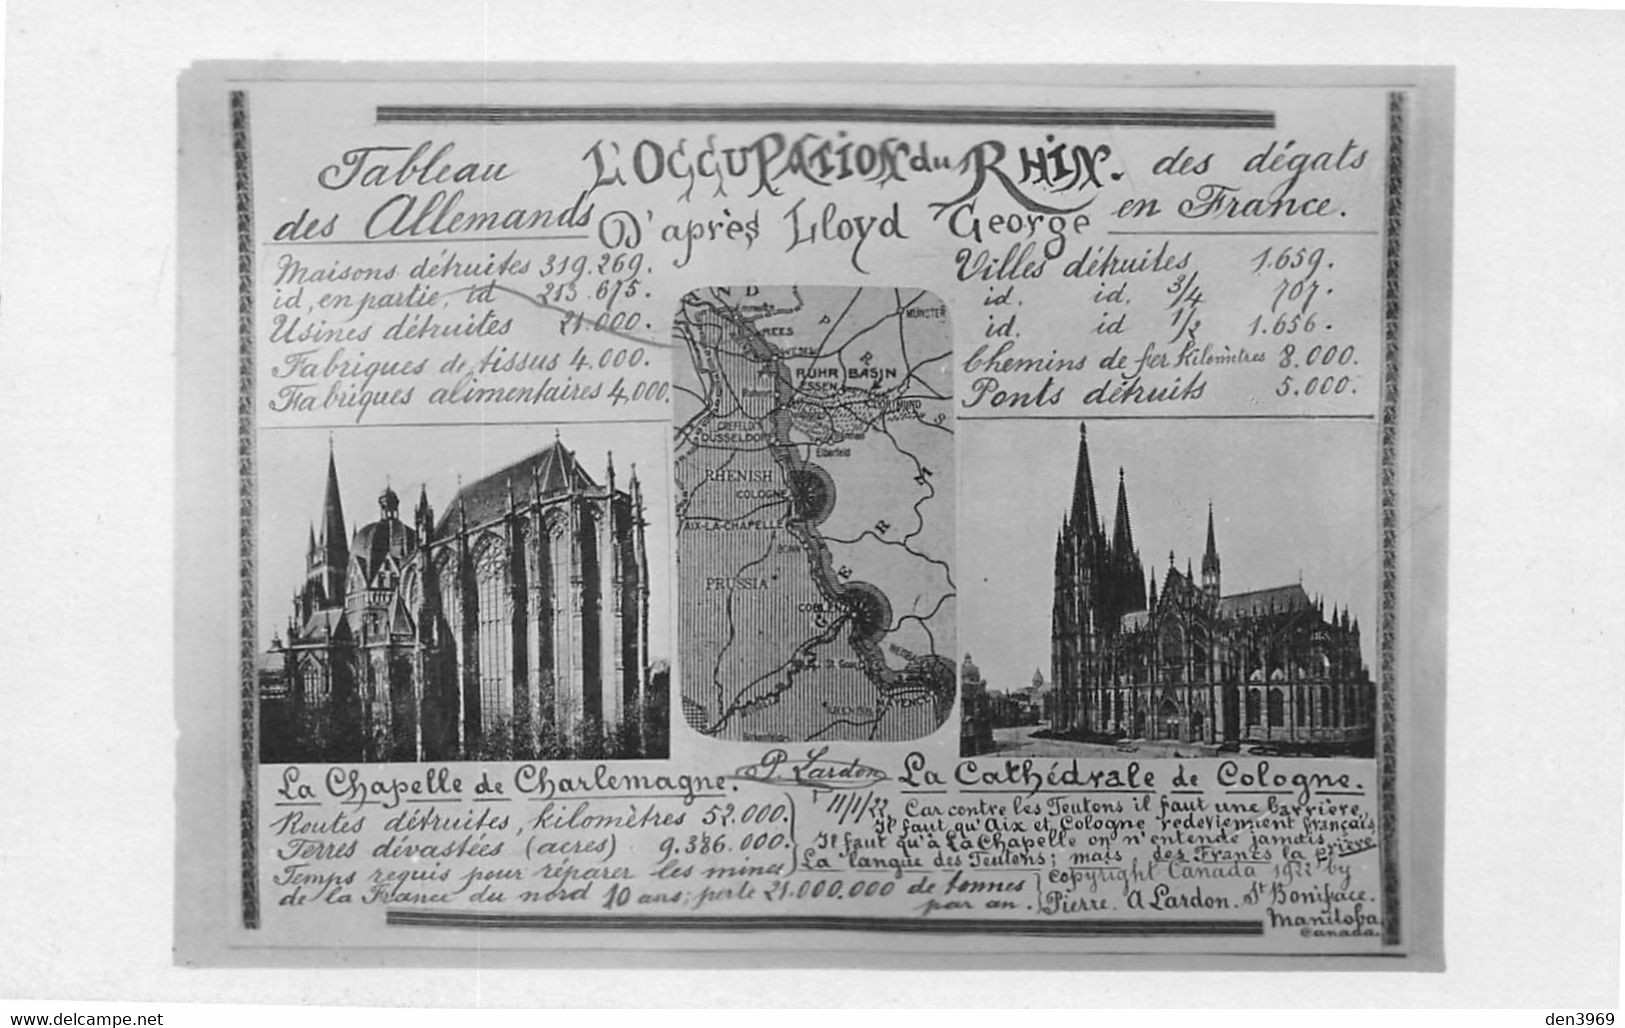 L'OCCUPATION du RHIN.
Tableau des dégats
des Allemands en France.
D'après Lloyd George
Maisons détruites 319.269.
id, en partie, id 213.675.
Usines détruites 21.000.
Fabriques de tissus 4.000.
Fabriques alimentaires 4,000.
Villes détruites 1.659.
id. id. 3/4 707.
id. id 1/2 1.656.
Chemins de fer kilomètres 8.000.
Ponts détruits 5.000.
MÜNSTER
REES
WESEL
RUHR BASIN
ESSEN
DORTMUND
CREFELD
DUSSELDORF
Elberfeld
RHENISH
COLOGNE
AIX-LA-CHAPELLE
BONN
PRUSSIA
COBLENZ
St. Goar
MAYENCE
GERMANY
La Chapelle de Charlemagne.
P. Lardon
11/1/22
La Cathédrale de Cologne.
Routes détruites, kilomètres 52.000.
Terres dévastées (acres) 9.386.000.
Temps requis pour réparer les mines
de la France du nord 10 ans; perte 21.000.000 de tonnes
par an.
Car contre les Teutons il faut une barrière,
Il faut qu'Aix et Cologne redeviennent français
Il faut qu'à La Chapelle on n'entende jamais
La langue des Teutons; mais des Francs la prière
Copyright Canada 1922 by
Pierre. A Lardon. St Boniface.
Manitoba
Canada.
delcampe.net
den3969